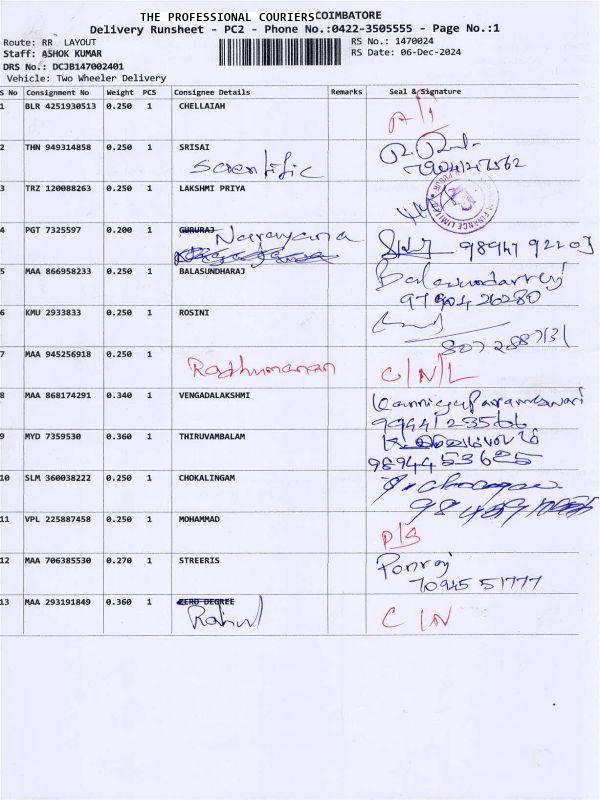 THE PROFESSIONAL COURIERS COIMBATORE
Delivery Runsheet - PC2 - Phone No.:0422-3505555 - Page No.:1
Route: RR LAYOUT
RS No.: 1470024
Staff: ASHOK KUMAR
RS Date: 06-Dec-2024
DRS No.: DCJB147002401
Vehicle: Two Wheeler Delivery
S No Consignment No Weight PCS Consignee Details Remarks Seal & Signature
1 BLR 4251930513 0.250 1 CHELLAIAH
2 THN 949314858 0.250 1 SRISAI
Scientific
3 TRZ 120088263 0.250 1 LAKSHMI PRIYA
FINANCE LIMITED
4 PGT 7325597 0.200 1 GURURAJ Narayana
98947 92203
5 MAA 866958233 0.250 1 BALASUNDHARAJ Balasundarraj
97904 26280
6 KMU 2933833 0.250 1 ROSINI
7 MAA 945256918 0.250 1 C/N/L
8 MAA 868174291 0.340 1 VENGADALAKSHMI
9994123566
9 MYD 7359530 0.360 1 THIRUVAMBALAM
9894453685
10 SLM 360038222 0.250 1 CHOKALINGAM
11 VPL 225887458 0.250 1 MOHAMMAD P/S
12 MAA 706385530 0.270 1 STREERIS Ponraj
70945 51777
13 MAA 293191849 0.360 1 ZERO DEGREE C/N
Rahul